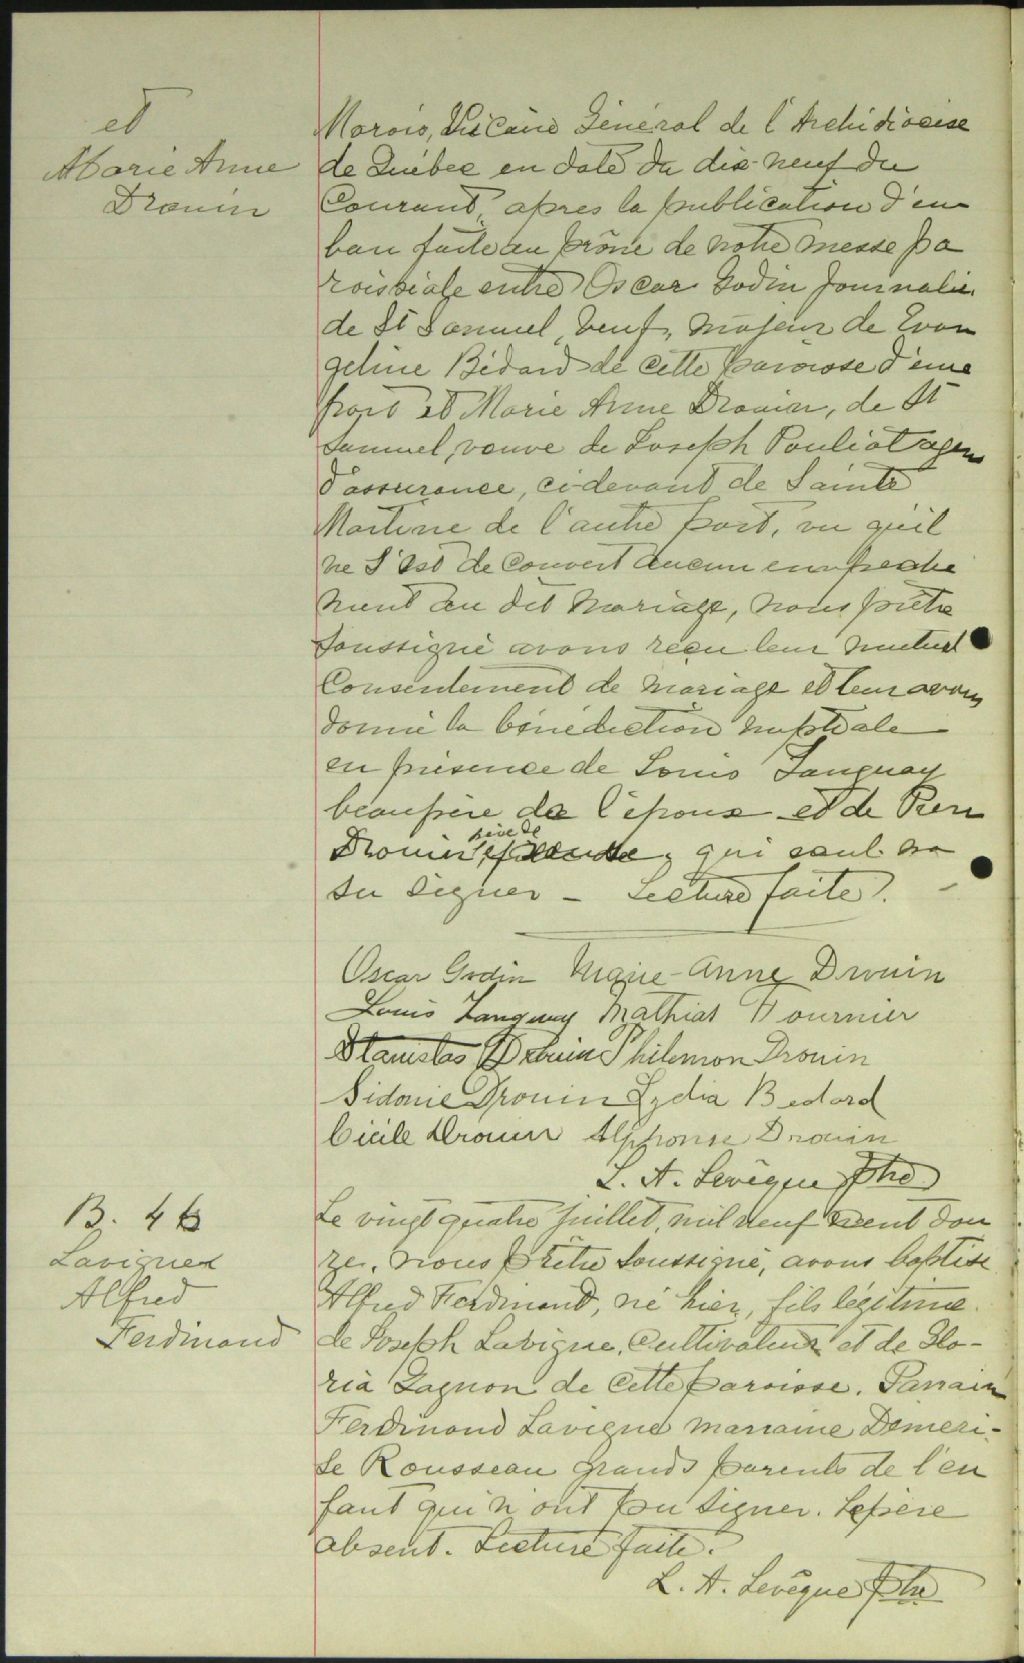 et
Marie Anne
Drouin
Marois, Vicaire Général de l'Archidiocèse
de Québec en date du dix-neuf du
Courant, apres la publication d'un
ban faite au prône de notre messe pa
roissiale entre Oscar Godin Journalier
de St Samuel, veuf, majeur de Evan
geline Bédard de cette paroisse d'une
part et Marie Anne Drouin, de St
Samuel, veuve de Joseph Pouliot agent
d'assurance, ci-devant de Sainte
Martine de l'autre part, vu qu'il
ne s'est decouvert aucun empeche
ment au dit mariage, nous prêtre
soussigné avons reçu leur mutuel
Consentement de mariage et leur avons
donné la bénédiction nuptiale
en présence de Louis Tanguay
beaupère de l'époux et de
Drouin père de qui seul na
su signer - Lecture faite.
Oscar Godin Marie-Anne Drouin
Louis Tanguay Mathias Fournier
Stanislas Drouin Philemon Drouin
Sidonie Drouin Lydia Bedard
Cécile Drouin Alphonse Drouin
L. A. Levêque ptre
B. 46
Lavigne
Alfred
Ferdinand
Le vingt quatre juillet, mil neuf cent dou
ze, nous prêtre soussigné, avons baptisé
Alfred Ferdinand, né hier, fils légitime
de Joseph Lavigne, Cultivateur et de Glo-
ria Gagnon de cette paroisse. Parrain
Ferdinand Lavigne marraine Démeri-
se Rousseau grands parents de l'en
fant qui n'ont pu signer. Le père
absent. Lecture faite.
L. A. Levêque ptre